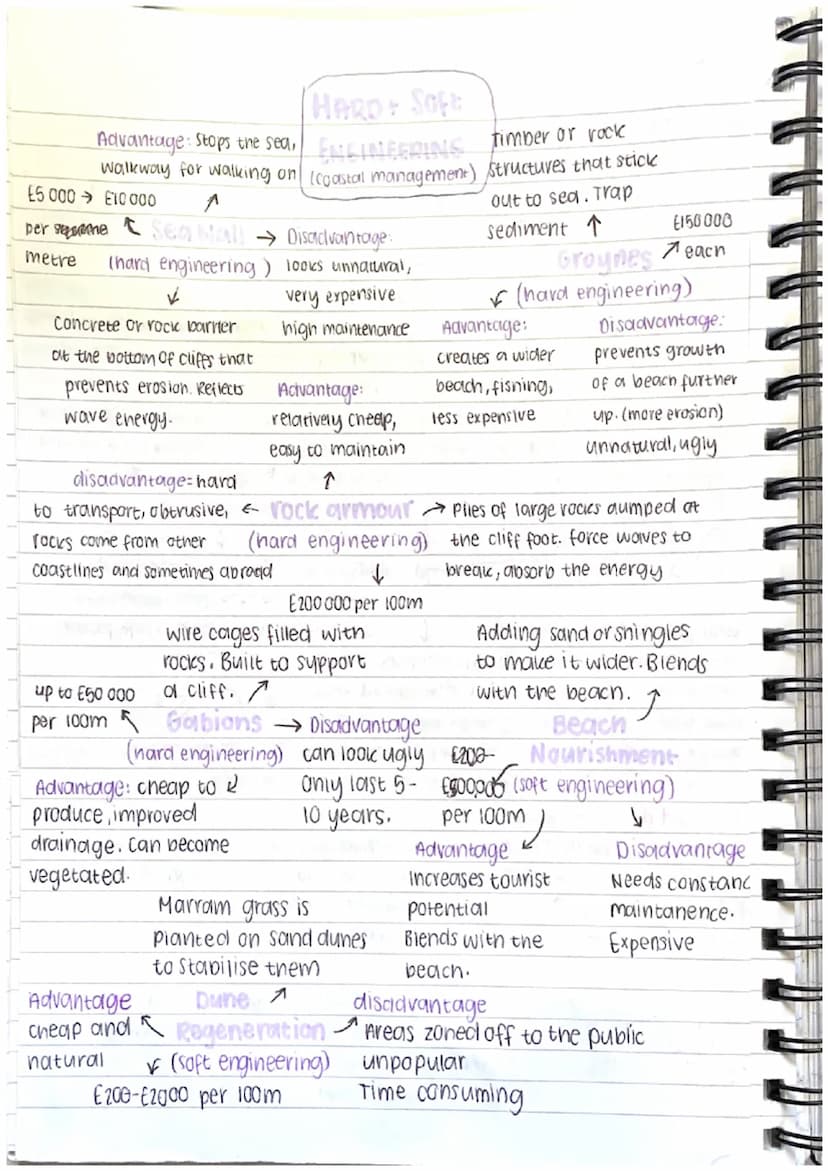 HARD + Soft
ENGINEERING
(coastal management)
Advantage: Stops the sea,
walkway for walking on
£5 000 → £10 000
per
metre
Sea Wall
(hard engineering)
→ Disadvantage:
looks unnatural,
very expensive
high maintenance
Concrete or rock barrier
at the bottom of cliffs that
prevents erosion. Reflects
wave energy.
Timber or rock
structures that stick
out to sea. Trap
sediment
Groynes
(hard engineering)
£150 000
each
Advantage:
creates a wider
beach, fishing,
less expensive
Disadvantage:
prevents growth
of a beach further
up. (more erosion)
unnatural, ugly
Advantage:
relatively cheap,
easy to maintain
disadvantage = hard
to transport, obtrusive,
rocks come from other
coastlines and sometimes abroad
← rock armour →
(hard engineering)
Piles of large rocks dumped at
the cliff foot. force waves to
break, absorb the energy
£200 000 per 100m
wire cages filled with
rocks. Built to support
a cliff.
up to £50 000
per 100m
Gabions
(hard engineering)
→ Disadvantage
can look ugly
Only last 5-
10 years.
Advantage: cheap to
produce, improved
drainage. Can become
vegetated.
Adding sand or shingles
to make it wider. Blends
with the beach.
Beach
Nourishment
(soft engineering)
£200-
per 100m
Advantage
Increases tourist
potential
Blends with the
beach.
Disadvantage
Needs constant
maintanence.
Expensive
Marram grass is
planted on sand dunes
to stabilise them
Dune
Regeneration
(soft engineering)
Advantage
cheap and
natural
£200-£2000 per 100m
disadvantage
Areas zoned off to the public
unpopular
Time consuming